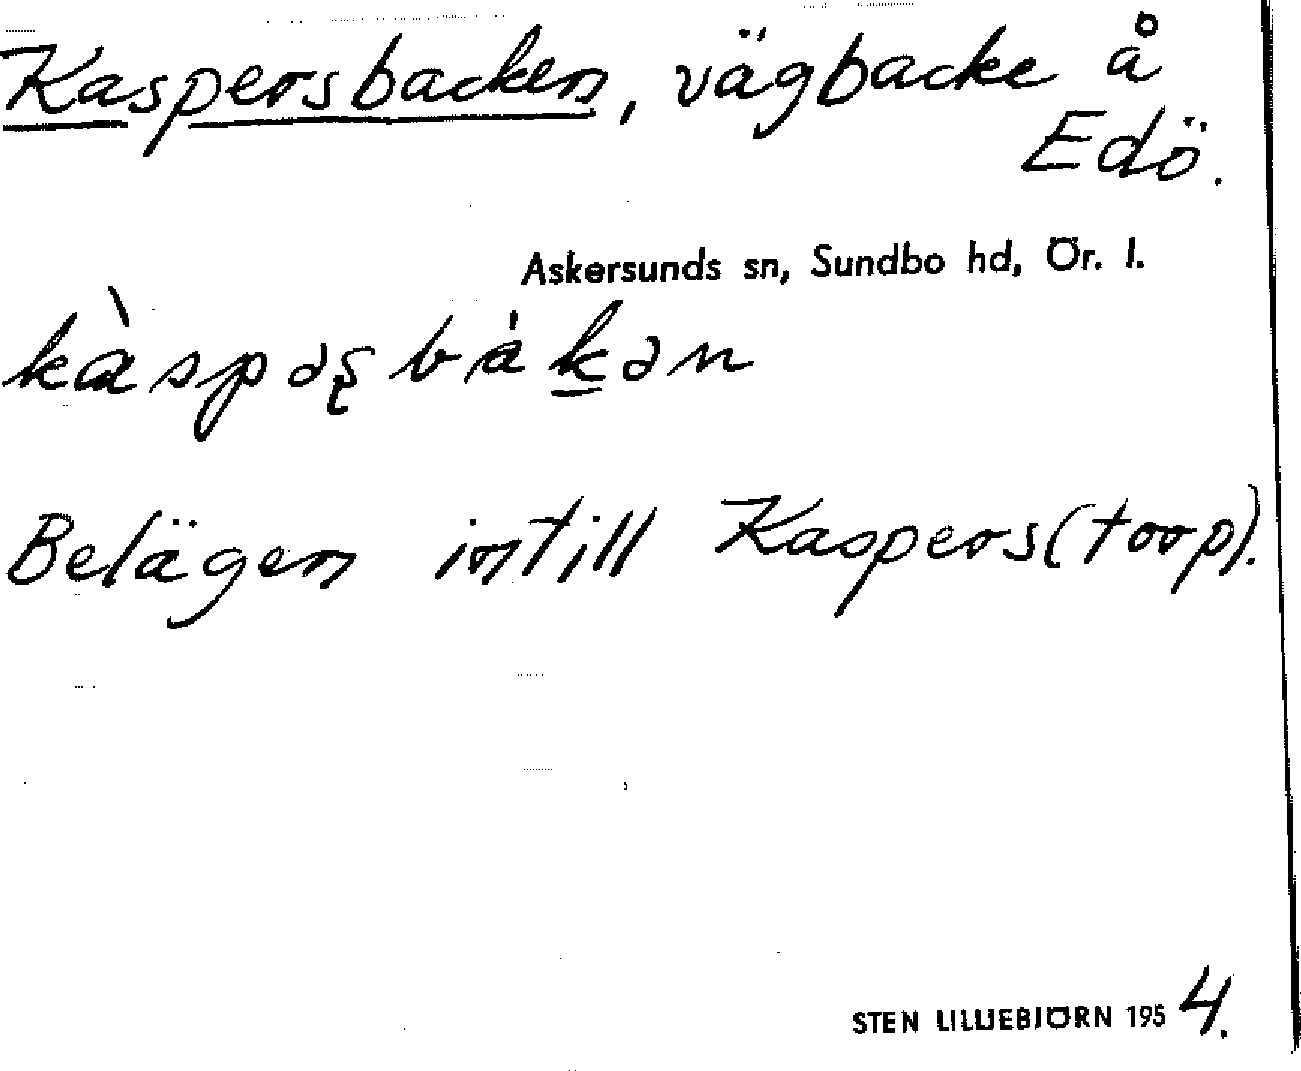 Kaspersbacken, vägbacke å
Edö.
Askersunds sn, Sundbo hd, Ör. l.
kàspəʂbákən
Belägen intill Kaspers(torp).
STEN LILLIEBJÖRN 1954.